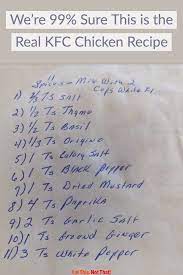 We're 99% Sure This is the
Real KFC Chicken Recipe
11
Spices - Mix With 2
Cups White Fl.
1) 2/3 Ts Salt
2) 1/2 Ts Thyme
3) 1/2 Ts Basil
4) 1/3 Ts Origino
5) 1 Ts Celery Salt
6) 1 Ts Black Pepper
7) 1 Ts Dried Mustard
8) 4 Ts Paprika
9) 2 Ts Garlic Salt
10) 1 Ts Ground Ginger
11) 3 Ts White Pepper
Eat This, Not That!